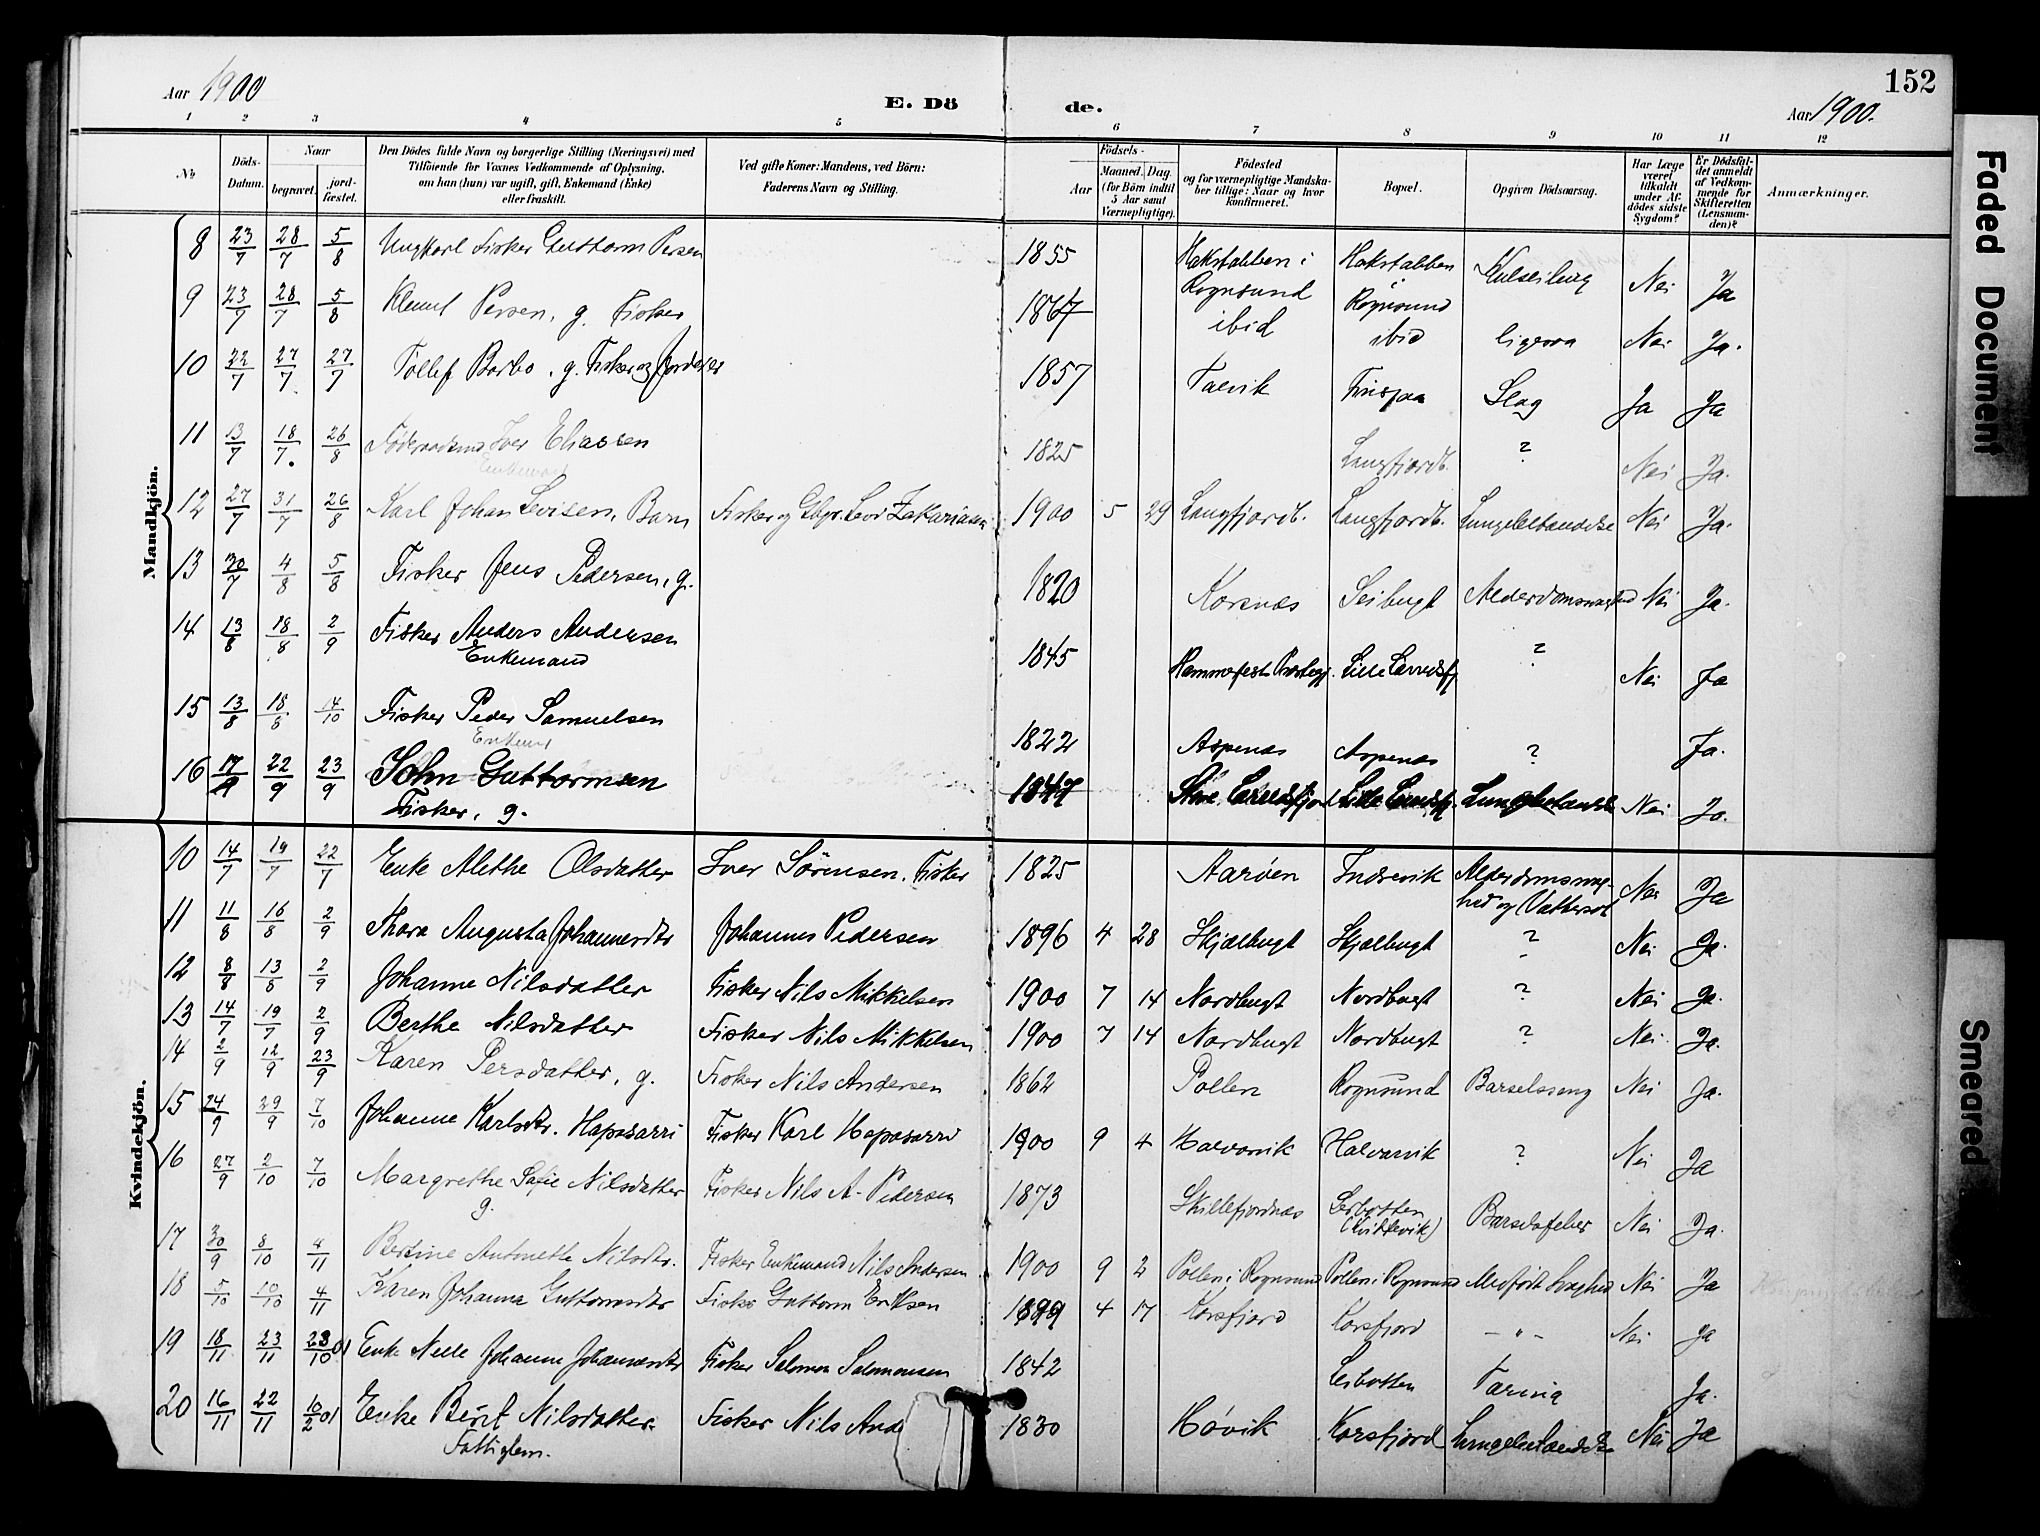 Aar 1900
E. Dö
de.
152
Aar 1900.
1 2 3 4 5 6 7 8 9 10 11 12
No
Döds-Datum.
Naar
begravet.
jord-fæstet.
Den Dödes fulde Navn og borgerlige Stilling (Næringsvei) med
Tilföiende for Voxnes Vedkommende af Oplysning,
om han (hun) var ugift, gift, Enkemand (Enke)
eller fraskilt.
Ved gifte Koner: Mandens, ved Börn:
Faderens Navn og Stilling.
Födsels-
Aar
Maaned. Dag.
(for Börn indtil
5 Aar samt
Værnepligtige).
Födested
og for værnepligtige Mandska-
ber tillige: Naar og hvor
konfirmeret.
Bopæl.
Opgiven Dödsaarsag.
Har Læge
været
tilkaldt
under Af-
dödes sidste
Sygdom?
Er Dödsfal-
det anmeldt
af Vedkom-
mende for
Skifteretten
(Lensman-
den)?
Anmærkninger.
Mandkjön.
8 23/7 28/7 5/8 Ungkarl Fisker Guttorm Persen 1855 Hakstabben i Rognsund Hakstabben i Rognsund Kulseiling Nei Ja
9 23/7 28/7 5/8 Klemet Persen, g. Fisker 1867 ibid ibid ligesaa Nei Ja.
10 22/7 27/7 27/7 Tollef Barbo, g. Fisker og Jordeier 1857 Talvik Slag Ja Ja
11 13/7 18/7. 26/8 Föderaadsmd Iver Eliassen 1825 Langfjordb. ? Nei Ja.
Enkemand
12 27/7 31/7 26/8 Karl Johan Levisen, Barn Fisker og Gbr. Levi Zakariassen 1900 5 29 Langfjordb. Langfjordb. Lungebetændelse Nei Ja.
13 30/7 4/8 5/8 Fisker Jens Pedersen, g. 1820 Korsnæs Seibugt Alderdomssvaghed Nei Ja.
14 13/8 18/8 2/9 Fisker Anders Andersen 1845 Hammerfest Prestegj. Lille Lerredsfj ? Nei Ja
Enkemand
15 13/8 18/8 14/10 Fisker Peder Samuelsen 1822 Aspenæs Aspenæs ? Ja.
Enkemd
16 17/9 22/9 23/9 John Guttormsen 1847 Store Lerredsfjord Lille Lerredsfj. Lungebetændelse Nei Ja.
Fisker, g.
Kvindekjön.
10 14/7 19/7 22/7 Enke Alethe Olsdatter Iver Sörensen. Fisker 1825 Aaröen Indrevik Alderdomssvag-
hed og Vattersot Nei Ja
11 11/8 16/8 2/9 Thora Augusta Johannesdtr Johannes Pedersen 1896 4 28 Skjælbugt Skjælbugt ? Nei Ja.
12 8/8 13/8 2/9 Johanne Nilsdatter Fisker Nils Mikkelsen 1900 7 14 Nordbugt Nordbugt ? Nei Ja.
13 14/7 19/7 2/9 Berthe Nilsdatter Fisker Nils Mikkelsen 1900 7 14 Nordbugt Nordbugt ? Nei. Ja.
14 2/9 12/9 23/9 Karen Persdatter, g. Fisker Nils Andersen 1862 Pollen Rognsund Barselsseng Nei Ja.
15 24/9 29/9 7/10 Johanne Karlsdtr. Hapasarri Fisker Karl Hapasarri 1900 9 4 Halvarvik Halvarvik ? Nei Ja
16 27/9 2/10 7/10 Margrethe Sofie Nilsdatter Fisker Nils A. Pedersen 1873 Skillefjordnæs Lerbotten
(Kvittevik) Barselfeber Nei Ja.
g.
17 30/9 8/10 4/11 Bertine Antonette Nilsdtr. Fisker Enkemand Nils Andersen 1900 9 2 Pollen i Rognsund Pollen i Rognsund Medfödt Svaghed Nei Ja
18 5/10 10/10 4/11 Karen Johanna Guttormsdtr Fisker Guttorm Eriksen 1899 4 17 Korsfjord Korsfjord – " – Nei Ja
19 18/11 23/11 23/10 01 Enke Nelle Johanne Johannesdtr Fisker Salomon Salomonsen 1842 Leirbotten Tæring Ja.
20 16/11 22/11 10/2 01 Enke Berit Nilsdatter. Fisker Nils And 1830 Hövik Korsfjord Lungebetændelse Nei Ja
Fattiglem.
Faded Document
Smeared